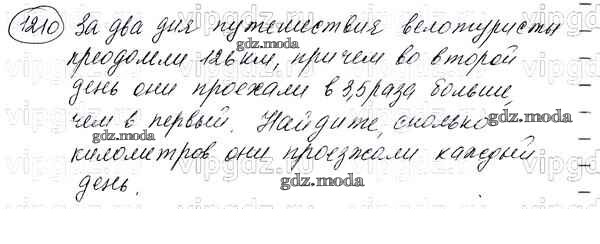 1210 За два дня путешествия велотуристы
gdz.moda
преодолели 126 км, причем во второй
день они проехали в 3,5 раза больше,
gdz.moda
чем в первый. Найдите, сколько
gdz.moda
gdz.moda
километров они проезжали каждый
день.
gdz.moda